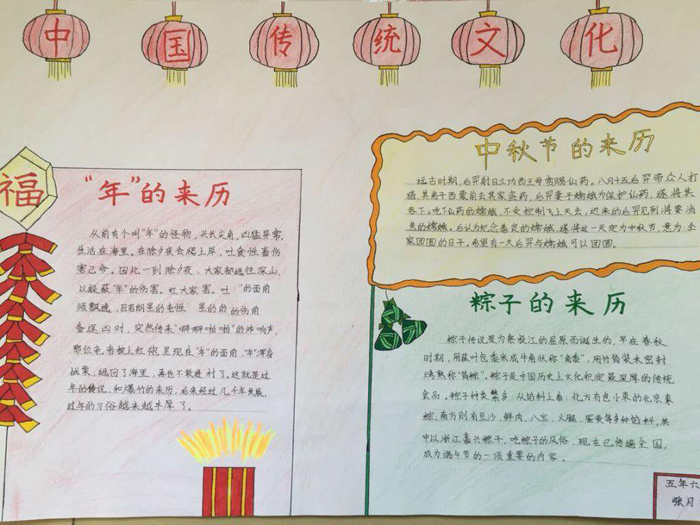 中国传统文化
福
“年”的来历
从前有个叫“年”的怪物，头长尖角，凶猛异常，
生活在海里。在除夕夜会爬上岸，吐食牲畜伤
害己命。因此一到除夕夜，大家都逃往深山，
以躲蔽“年”的伤害。
的面前
的伤角
突然传来“噼噼啪啪”的炸响声，
“年”浑身
战栗，逃回了海里，再也不敢来村了。这就是过
年的传说，和爆竹的来历，后来经过几千年发展，
过年的习俗越来越丰厚了。
中秋节的来历
远古时期，后羿射日立功西王母密赐仙药。八月十五后羿带众人打
猎，其弟子西蒙前去其家盗药，后羿妻子嫦娥为保护仙药，遂将其
吞下。吃下仙药的嫦娥，不受控制飞上天去，迟来的后羿见到将要消
失的嫦娥，后认为纪念善良的嫦娥，遂将这一天定为中秋节，意为全
家团圆的日子。希望有一天后羿与嫦娥可以团圆。
粽子的来历
粽子传说是为祭投江的屈原而诞生的，早在春秋
时期，用菰叶包黍米成牛角状称“角黍”，用竹筒装米密封
烤熟称“筒粽”。粽子是中国历史上文化积淀最深厚的传统
食品。粽子种类繁多，从馅料上看，北方有包小枣的北京枣
粽；南方则有豆沙、鲜肉、八宝、火腿、蛋黄等多种馅料，其
中以浙江嘉兴粽子，吃粽子的风俗，现在已传遍全国，
成为端午节的一项重要的内容。
五年六
张月